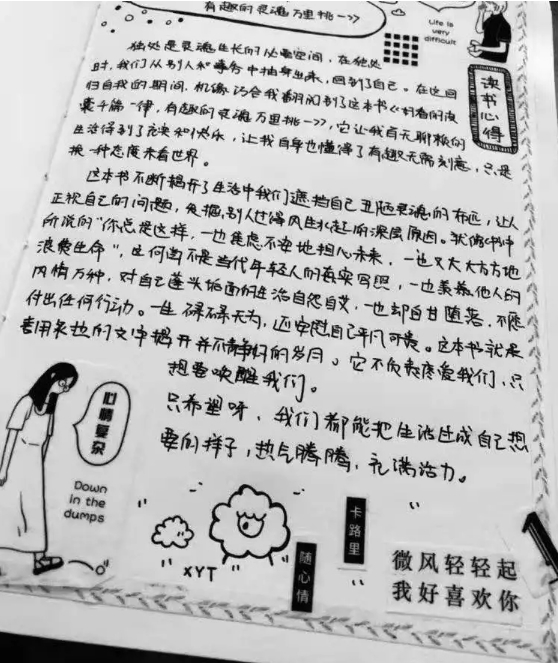 有趣的灵魂万里挑一>>
Life is
very
difficult
读书心得
独处是灵魂生长的必要空间，在独处
时，我们从别人和事务中抽身出来，回到了自己。在这回
归自我的期间，机缘巧合我翻阅到了这本书《好看的皮
囊千篇一律，有趣的灵魂万里挑一>>，它让我百无聊赖的
生活得到了充实和快乐，让我自身也懂得了有趣无需刻意，只是
换一种态度来看世界。
这本书不断揭开了生活中我们遮挡自己丑陋灵魂的布近，让人
正视自己的问题，发掘别人过得风生水起的深层原因。就像书中
所说的"你总是这样，一边焦虑不安地担心未来，一边又大大方方地
浪费生命"，这何尝不是当代年轻人的真实写照，一边羡慕他人的
风情万种，对自己蓬头垢面的生活自怨自艾，一边却自甘堕落，不愿
付出任何行动。一生碌碌无为，还安慰自己平凡可贵。这本书就是
善用朱拉的文字揭开并不静好的岁月。它不负责疼爱我们，只
想要唤醒我们。
只希望呀，我们都能把生活过成自己想
要的样子，热气腾腾，充满活力。
心情复杂
Down
in the
dumps
XYT
随心情
卡路里
微风轻轻起
我好喜欢你